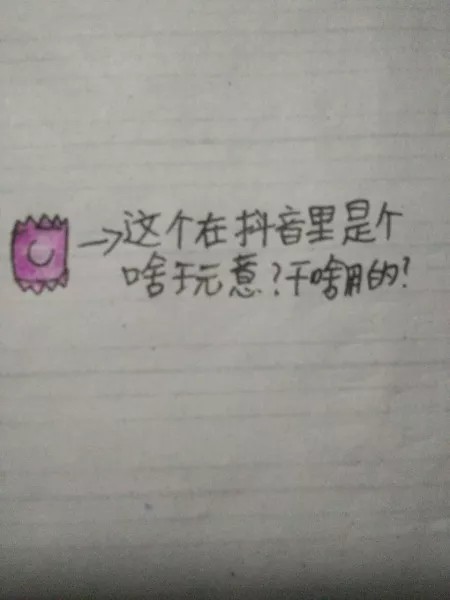 这个在抖音里是个
啥于玩意?干啥用的?